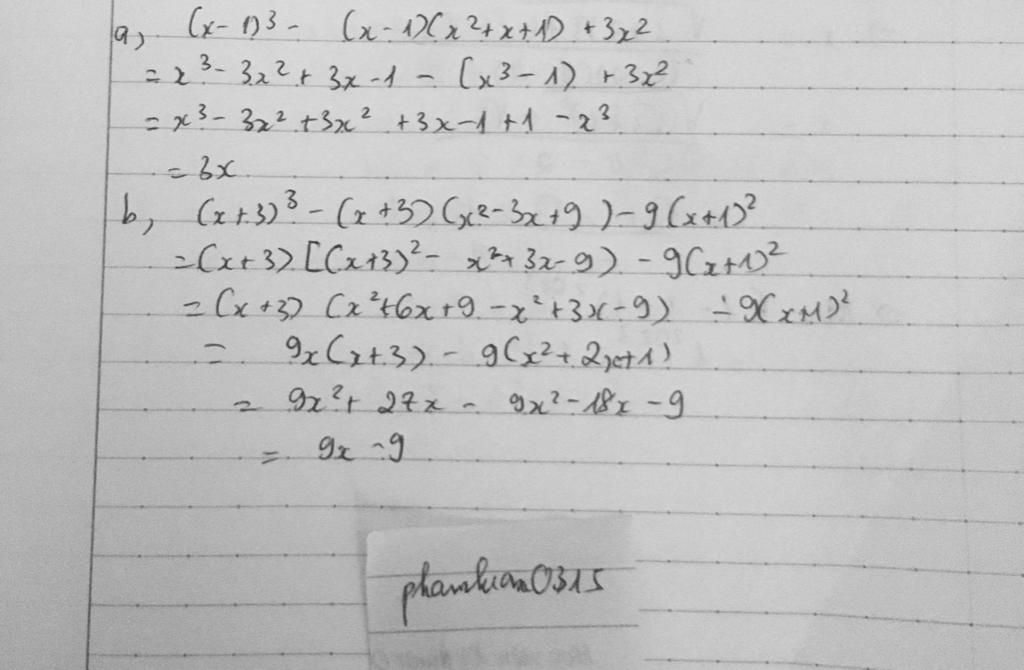 a, (x-1)³ - (x-1)(x²+x+1) +3x²
= x³ - 3x² + 3x - 1 - (x³ - 1) + 3x²
= x³ - 3x² + 3x² + 3x - 1 + 1 - x³
= 3x
b, (x+3)³ - (x+3)(x²-3x+9) - 9(x+1)²
= (x+3) [(x+3)² - x²+3x-9) - 9(x+1)²
= (x+3) (x²+6x+9 - x²+3x-9) - 9(x+1)²
= 9x(x+3) - 9(x²+2x+1)
= 9x² + 27x - 9x² - 18x - 9
= 9x - 9
phamluan0315